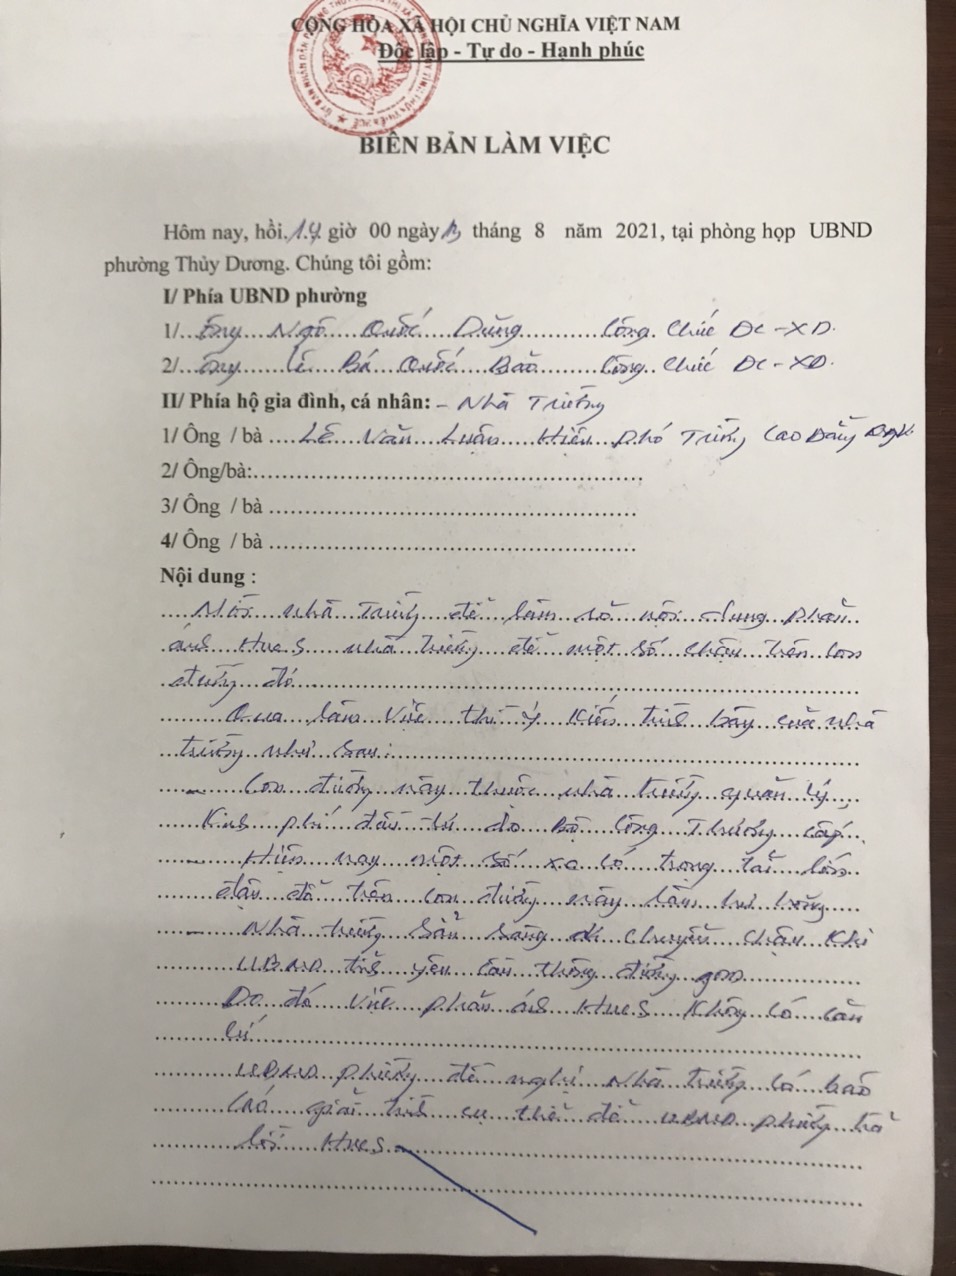 CỘNG HÒA XÃ HỘI CHỦ NGHĨA VIỆT NAM
Độc lập - Tự do - Hạnh phúc
BIÊN BẢN LÀM VIỆC
Hôm nay, hồi 14 giờ 00 ngày tháng 8 năm 2021, tại phòng họp UBND
phường Thủy Dương. Chúng tôi gồm:
I/ Phía UBND phường
1/ Ông Ngô Quốc Dũng Công chức ĐC-XD.
2/ Ông Lê Bá Quốc Bảo Công chức ĐC-XD.
II/ Phía hộ gia đình, cá nhân: - Nhà Trường
1/ Ông / bà Lê Văn Luận Hiệu Phó Trường Cao Đẳng
2/ Ông/bà:
3/ Ông / bà
4/ Ông / bà
Nội dung :
Mời nhà trường để làm rõ nội dung phản
ánh Hue.S nhà trường để một số chậu trên con
đường đó
Qua làm việc thì ý kiến trình bày của nhà
trường như sau:
- Con đường này thuộc nhà trường quản lý,
Kinh phí đầu tư do Bộ Công Thương cấp.
- Hiện nay một số xe có trọng tải lớn
đậu đỗ trên con đường này làm hư hỏng
- Nhà trường sẵn sàng di chuyển chậu khi
UBND tỉnh yêu cầu thông đường
Do đó việc phản ánh Hue.S không có căn
cứ
UBND phường đề nghị Nhà trường có báo
cáo giải trình cụ thể để UBND phường trả
lời Hue.S